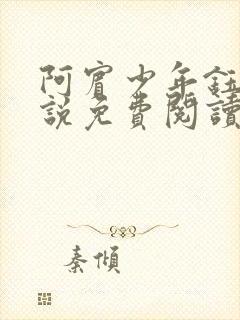 阿賓少年鈺
說免費閱讀
秦傾